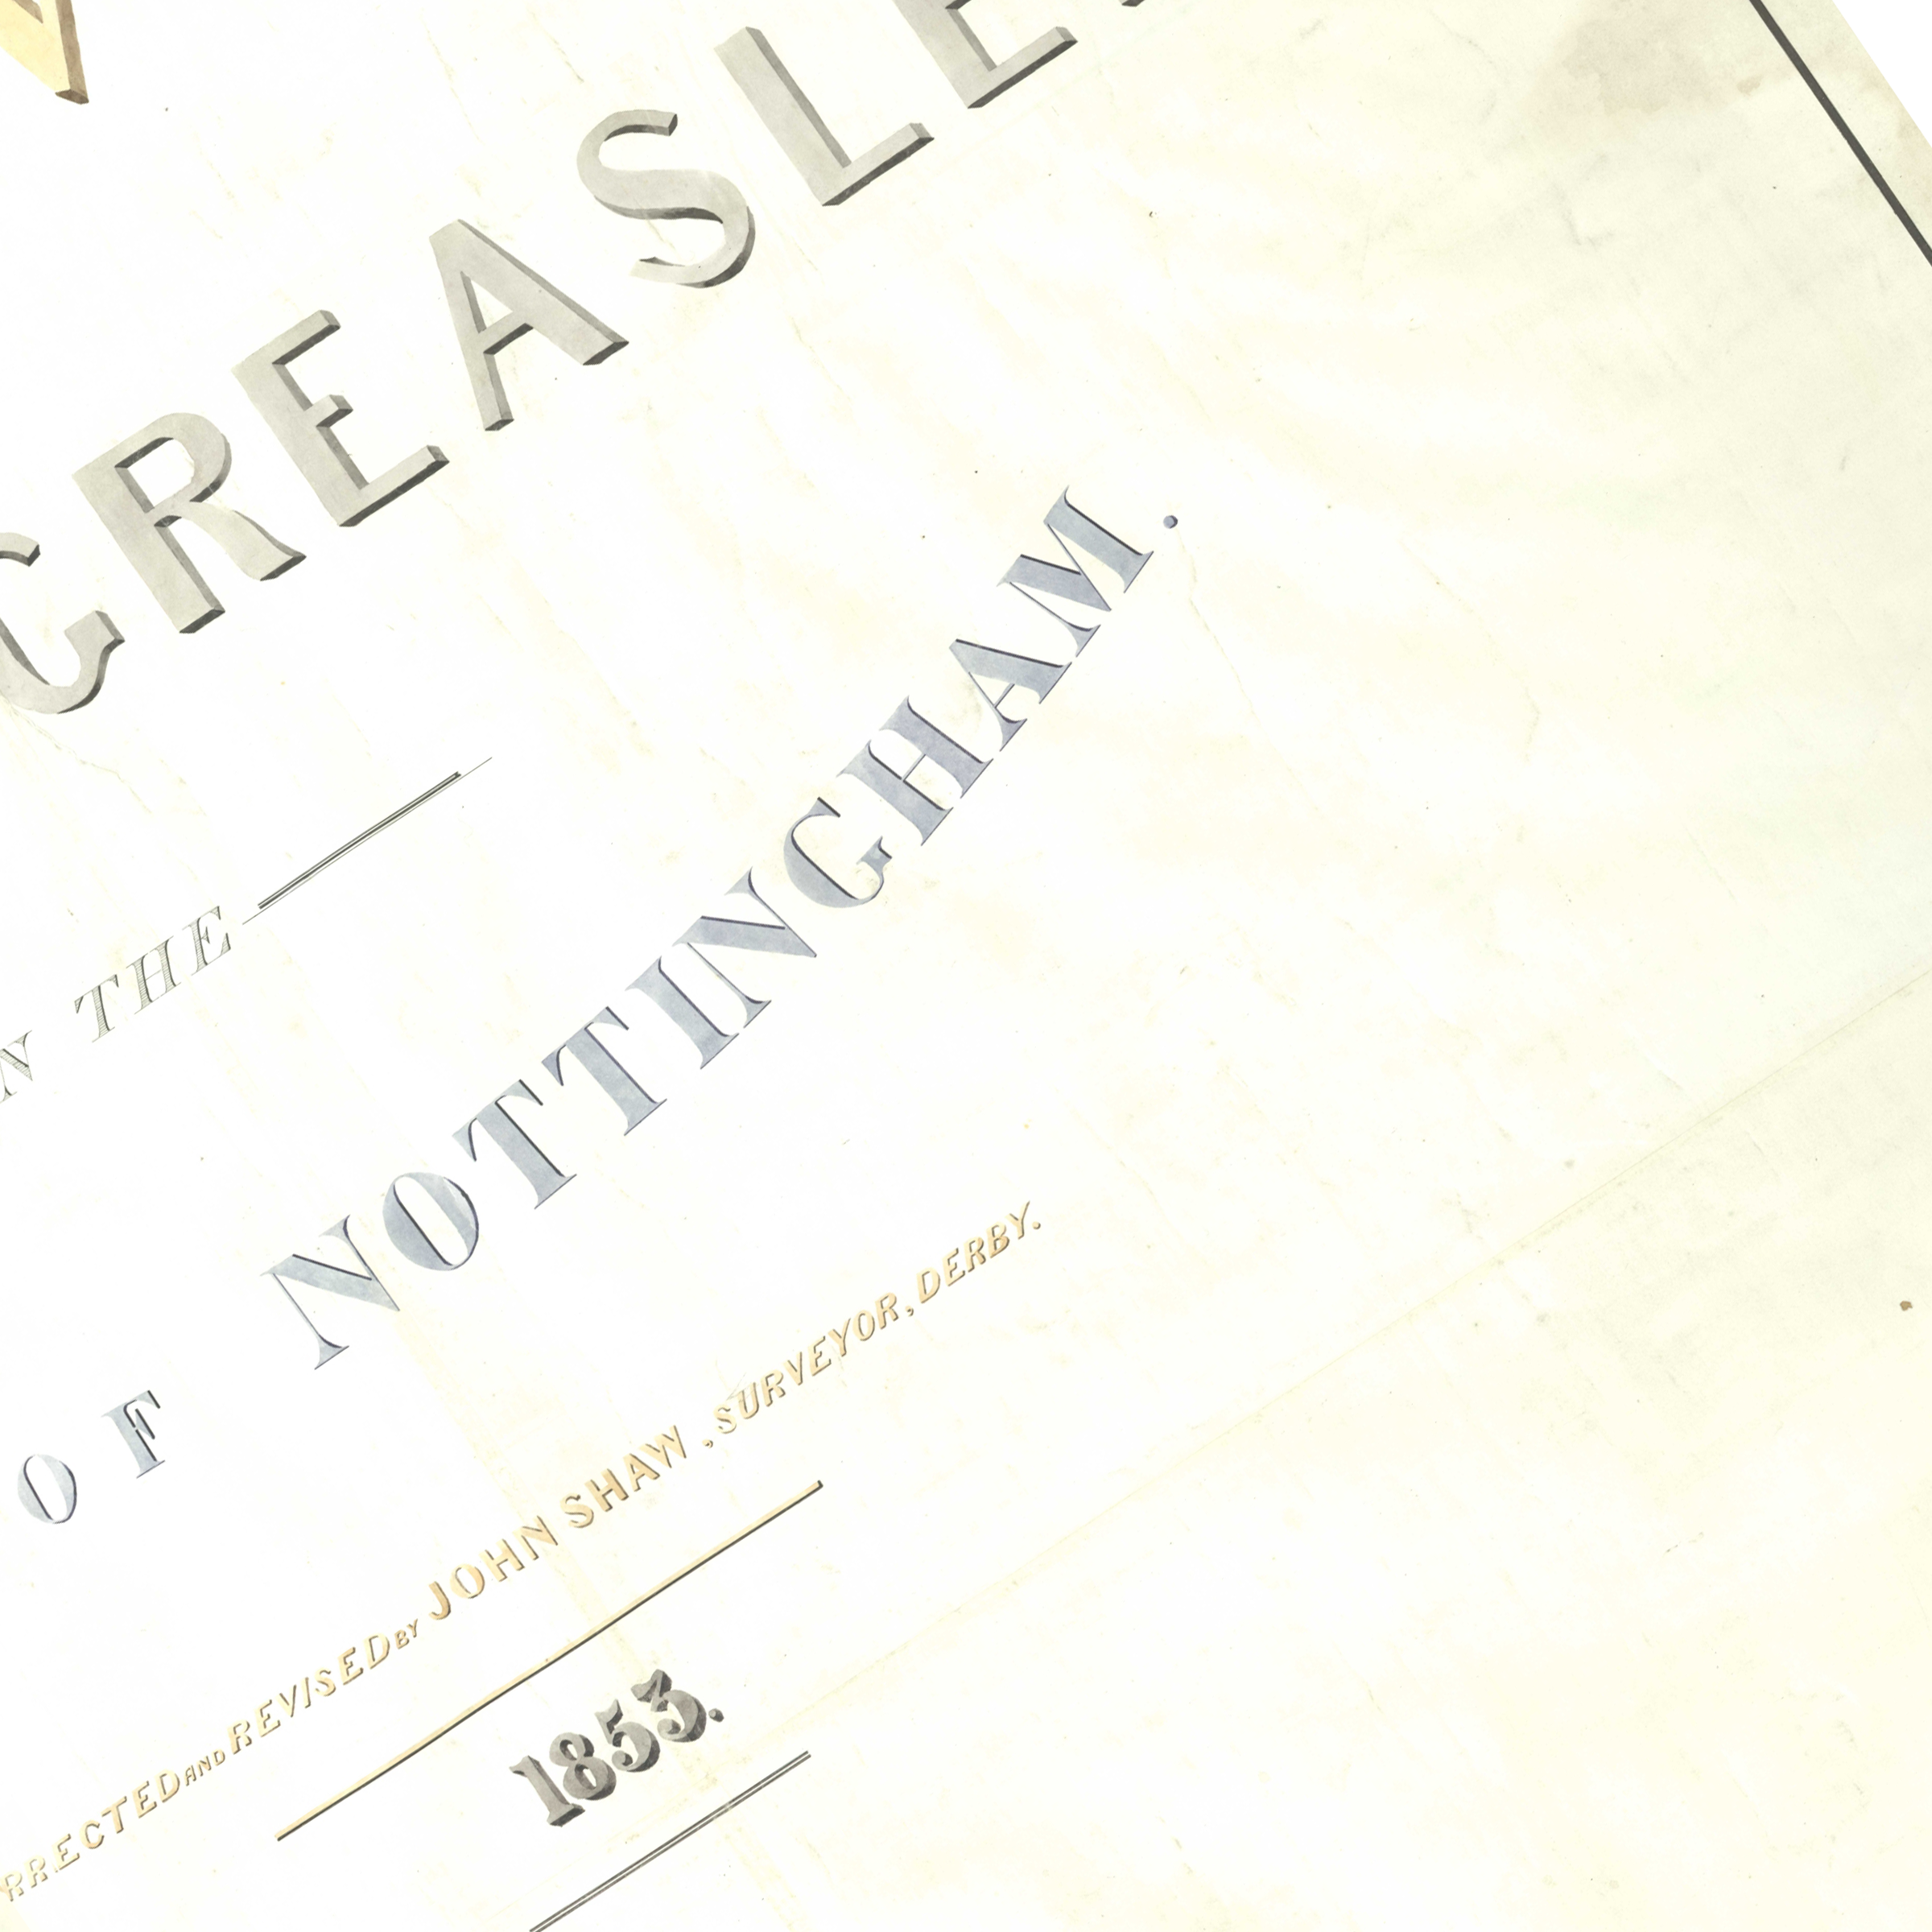 GREASLE
THE
OF NOTTINGHAM.
RRECTED AND REVISED BY JOHN SHAW, SURVEYOR, DERBY.
1853.